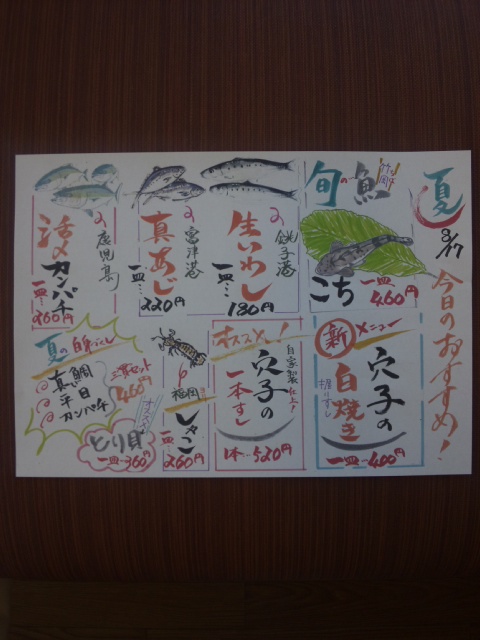 夏
8/17
今日のおすすめ!
旬の魚
こち
一皿 460円
銚子港の
生いわし
一皿… 180円
富津港の
真あじ
一皿… 220円
鹿児島の
活〆カンパチ
一皿… 260円
新メニュー
穴子の
白焼き
握りずし
一皿〜400円
オススメ!
自家製仕上!
穴子の
一本すし
1本…520円
福岡
シャコ
一皿… 260円
夏の白身づくし
三貫セット
460円
真鯛
平目
カンパチ
オススメ
とり貝
一皿〜360円